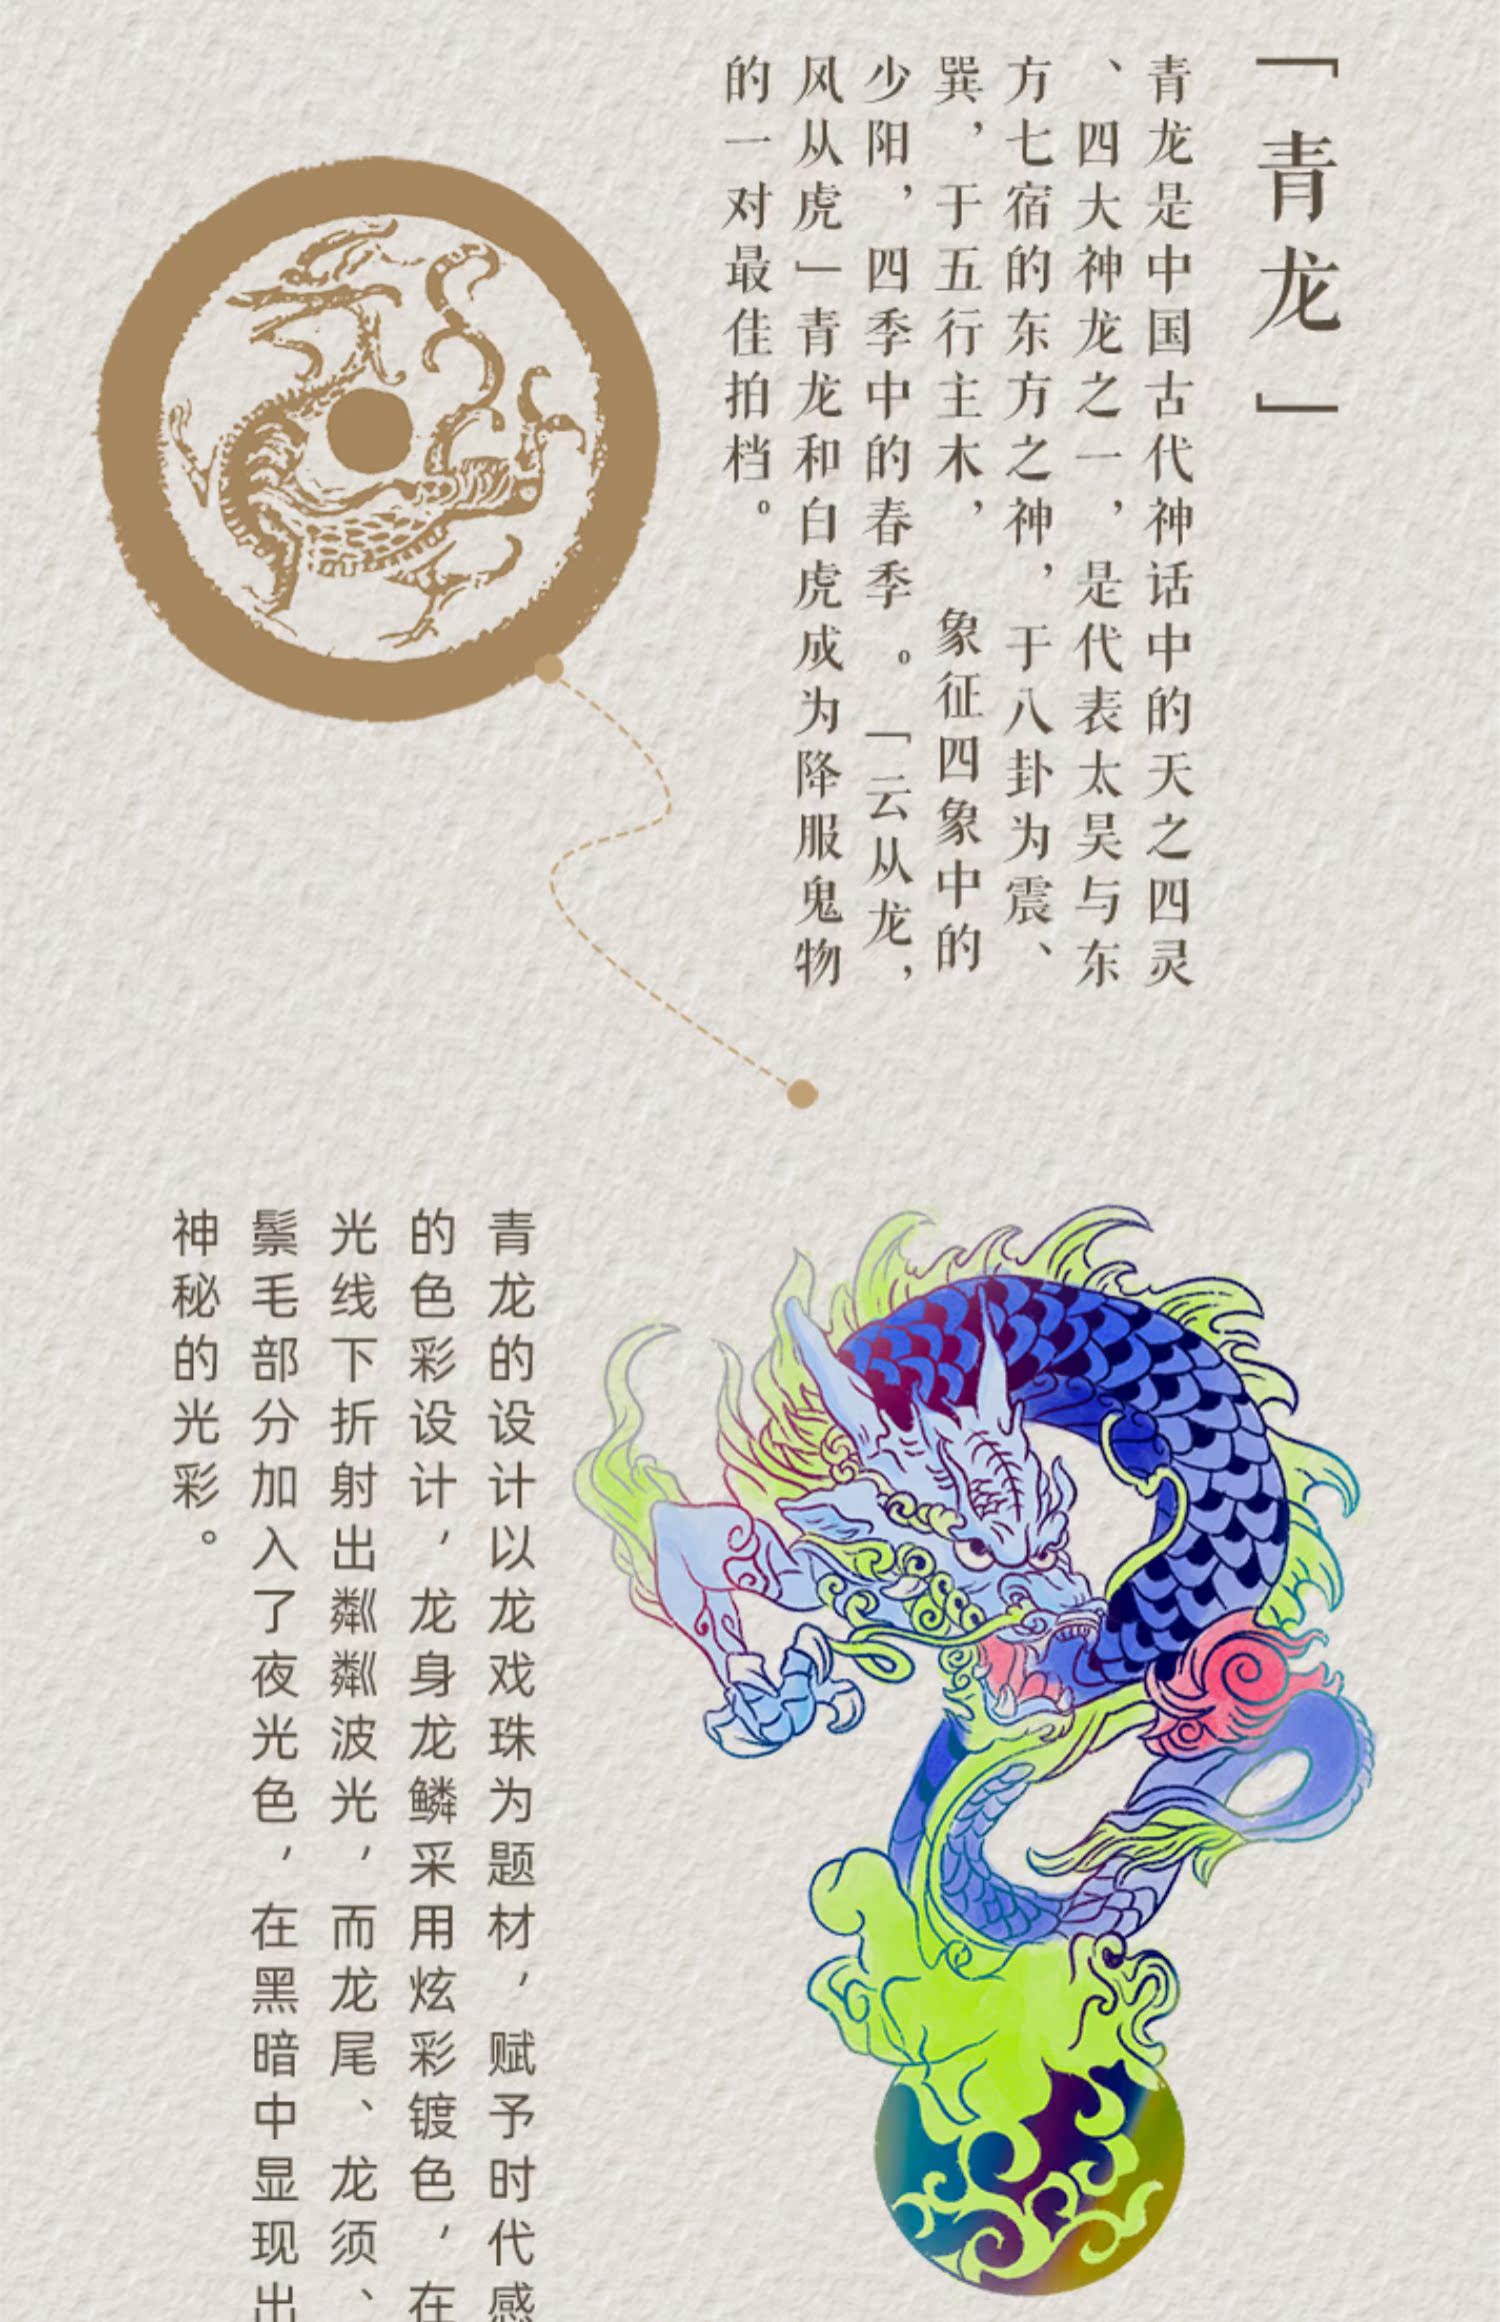 「青龙」
青龙是中国古代神话中的天之四灵
、四大神龙之一，是代表太昊与东
方七宿的东方之神，于八卦为震、
巽，于五行主木，象征四象中的
少阳，四季中的春季。「云从龙，
风从虎」青龙和白虎成为降服鬼物
的一对最佳拍档。
青龙的设计以龙戏珠为题材，赋予时代感
的色彩设计，龙身龙鳞采用炫彩镀色，在
光线下折射出粼粼波光，而龙尾、龙须、
鬃毛部分加入了夜光色，在黑暗中显现出
神秘的光彩。